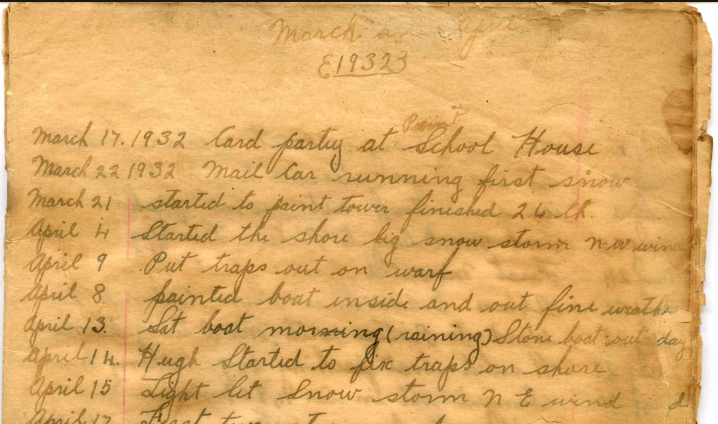 March
{1932}
Point
March 17. 1932 Card party at School House
March 22 1932 Mail Car running first snow
March 21 started to paint tower finished 26 th.
April 4 Started the shore big snow storm N W wind
April 9 Put traps out on warf
April 8 painted boat inside and out fine weather
April 13 Sat boat morning (raining) Stone boat out day
April 14. Hugh Started to fix traps on shore
April 15 Light lit Snow storm N E wind
April 17